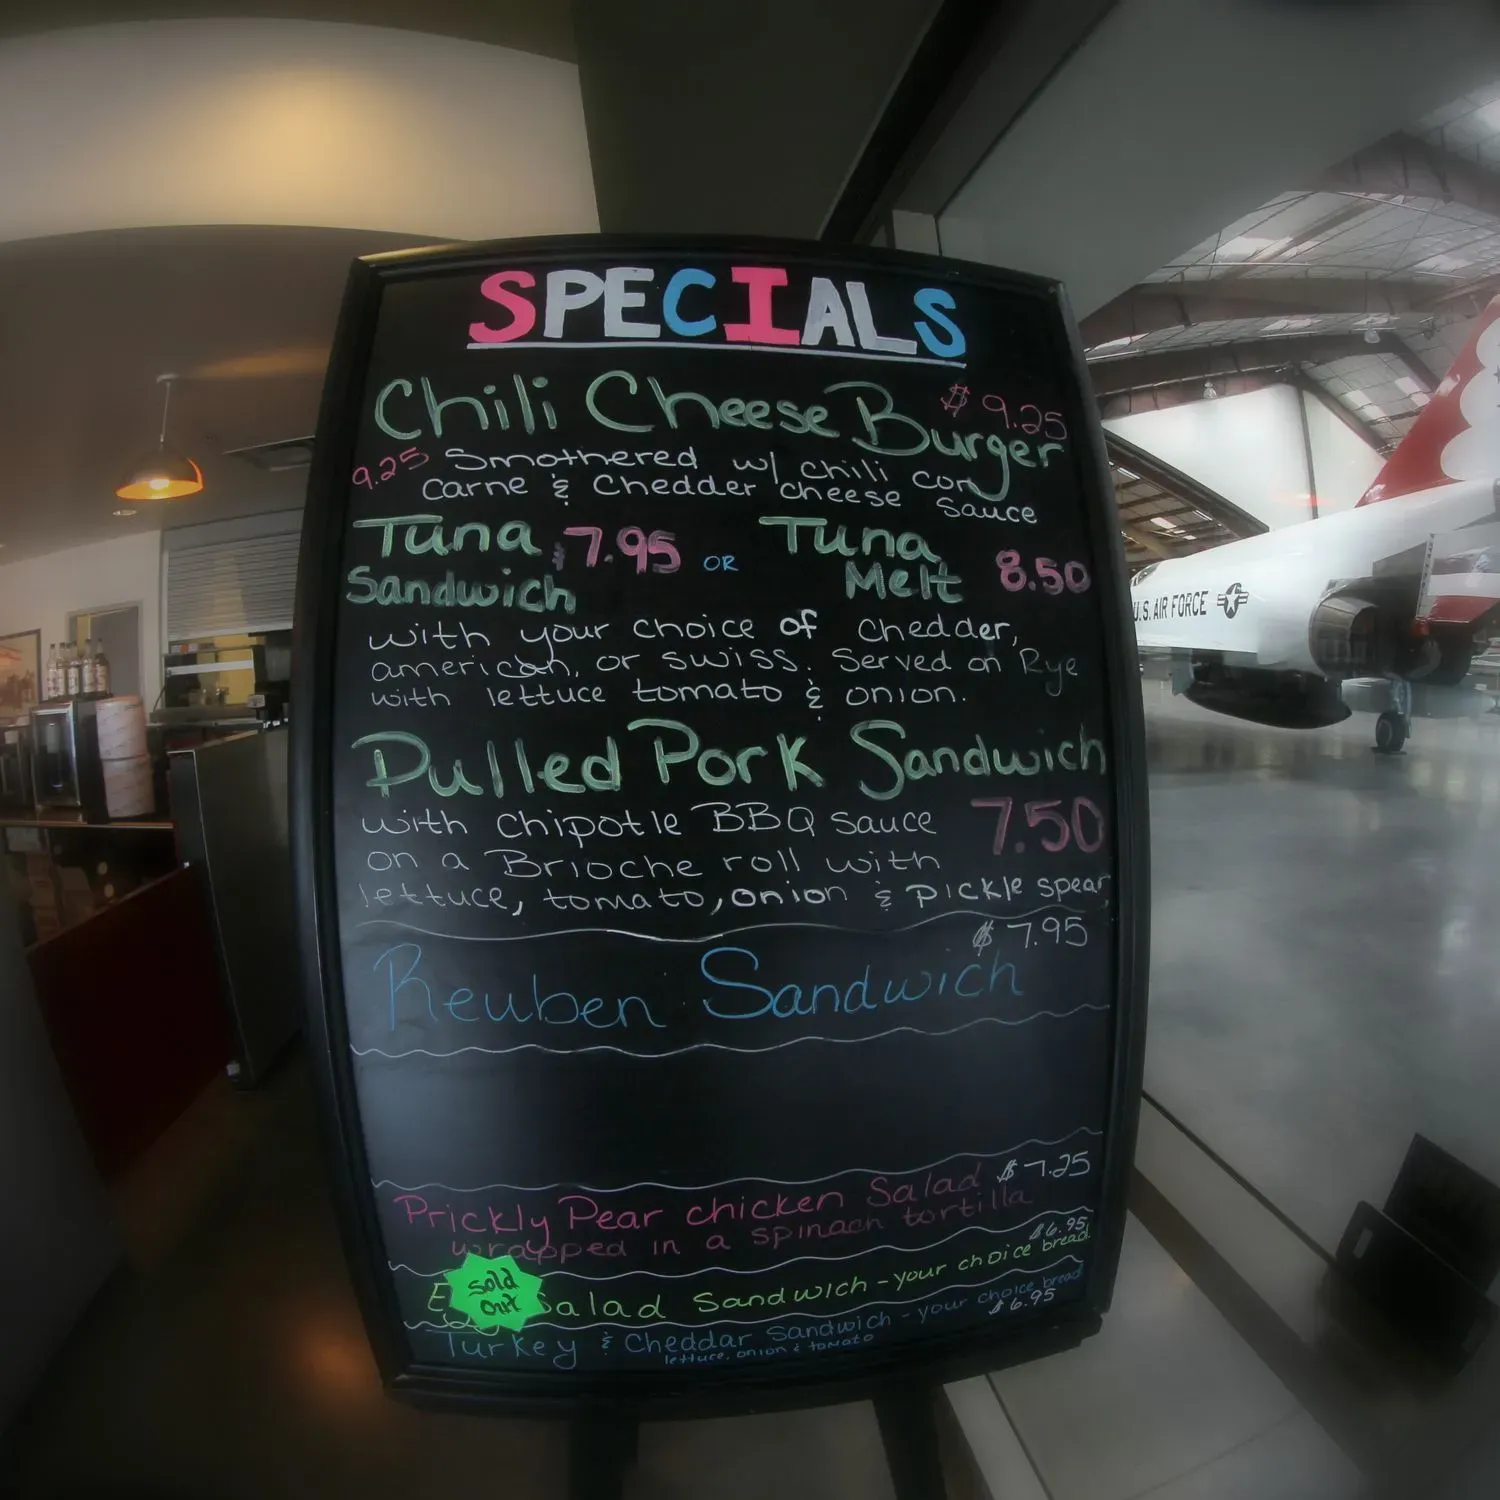 SPECIALS
Chili Cheese Burger $9.25
9.25 Smothered w/ chili con
carne & Chedder cheese Sauce
Tuna $7.95 OR Tuna
Sandwich Melt 8.50
with your choice of chedder,
american, or swiss. Served on Rye
with lettuce tomato & onion.
Pulled Pork Sandwich
with chipotle BBQ sauce 7.50
on a Brioche roll with
lettuce, tomato, onion & Pickle spear
$7.95
Reuben Sandwich
Prickly Pear chicken Salad $7.25
wrapped in a spinach tortilla
$6.95
Salad Sandwich - your choice bread
sold
out
Turkey & Cheddar Sandwich - your choice bread
lettuce, onion & tomato $6.95
U.S. AIR FORCE